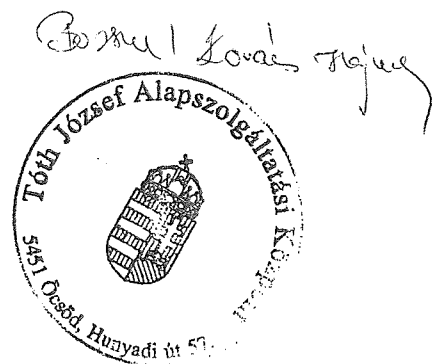 Kovács
Tóth József Alapszolgáltatási Központ
5451 Öcsöd, Hunyadi út 57.